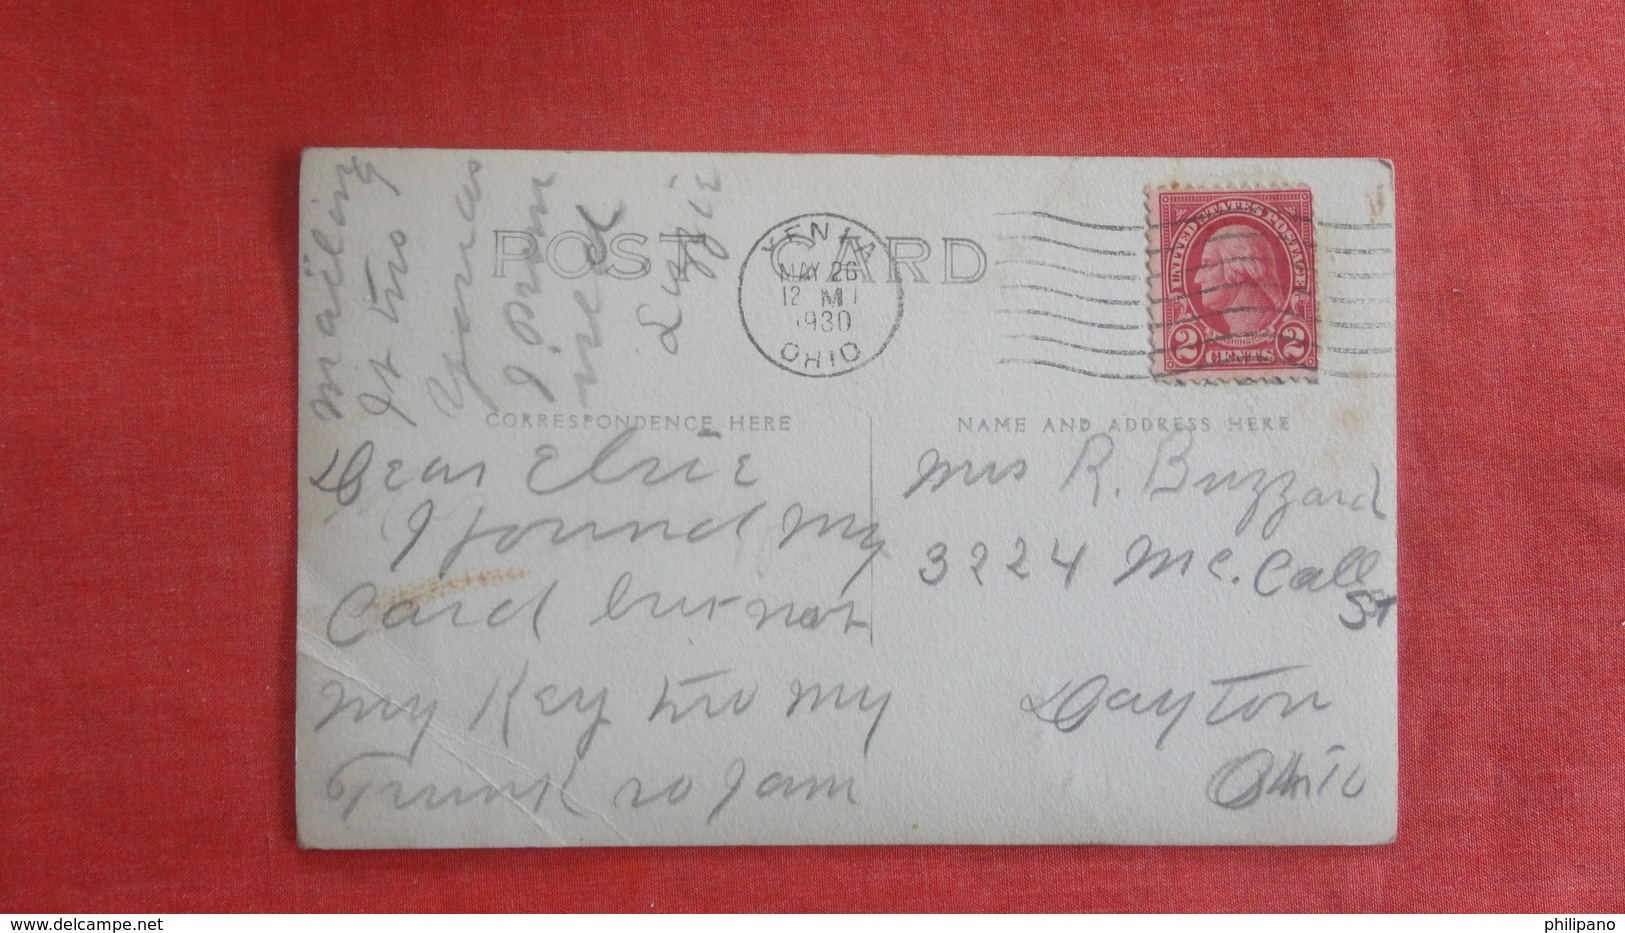 mailing
it to
you as
I prom
ised
POST CARD
XENIA
MAY 26
12 M
1930
OHIO
UNITED STATES POSTAGE
2 CENTS 2
CORRESPONDENCE HERE
NAME AND ADDRESS HERE
Dear Elsie
I found my
Card but not
my Key to my
Trunk so I am
Mrs R. Buzzard
3224 Mc. Call
St
Dayton
Ohio
philipano